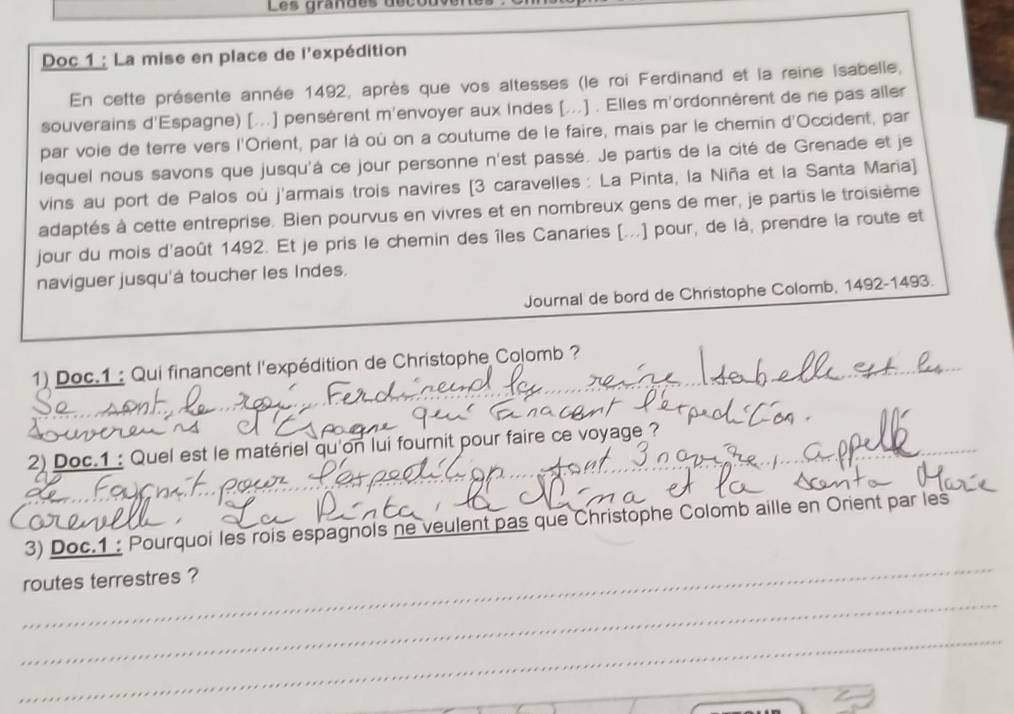 Les grandes découvertes
Doc 1 : La mise en place de l'expédition
En cette présente année 1492, après que vos altesses (le roi Ferdinand et la reine Isabelle,
souverains d'Espagne) [...] pensèrent m'envoyer aux Indes [...] . Elles m'ordonnèrent de ne pas aller
par voie de terre vers l'Orient, par là où on a coutume de le faire, mais par le chemin d'Occident, par
lequel nous savons que jusqu'à ce jour personne n'est passé. Je partis de la cité de Grenade et je
vins au port de Palos où j'armais trois navires [3 caravelles : La Pinta, la Niña et la Santa Maria]
adaptés à cette entreprise. Bien pourvus en vivres et en nombreux gens de mer, je partis le troisième
jour du mois d'août 1492. Et je pris le chemin des îles Canaries [...] pour, de là, prendre la route et
naviguer jusqu'à toucher les Indes.
Journal de bord de Christophe Colomb, 1492-1493.
1) Doc.1 : Qui financent l'expédition de Christophe Colomb ?
Se sont le roi, Ferdinend la reine Isabelle est les
souvereins d'Espagne qui finacent l'erpedition.
2) Doc.1 : Quel est le matériel qu'on lui fournit pour faire ce voyage ?
de fournit pour l'erpedition sont 3 navire, appellé
Carevelle. La Pinta, la Nima et la santa Marie
3) Doc.1 : Pourquoi les rois espagnols ne veulent pas que Christophe Colomb aille en Orient par les
routes terrestres ?